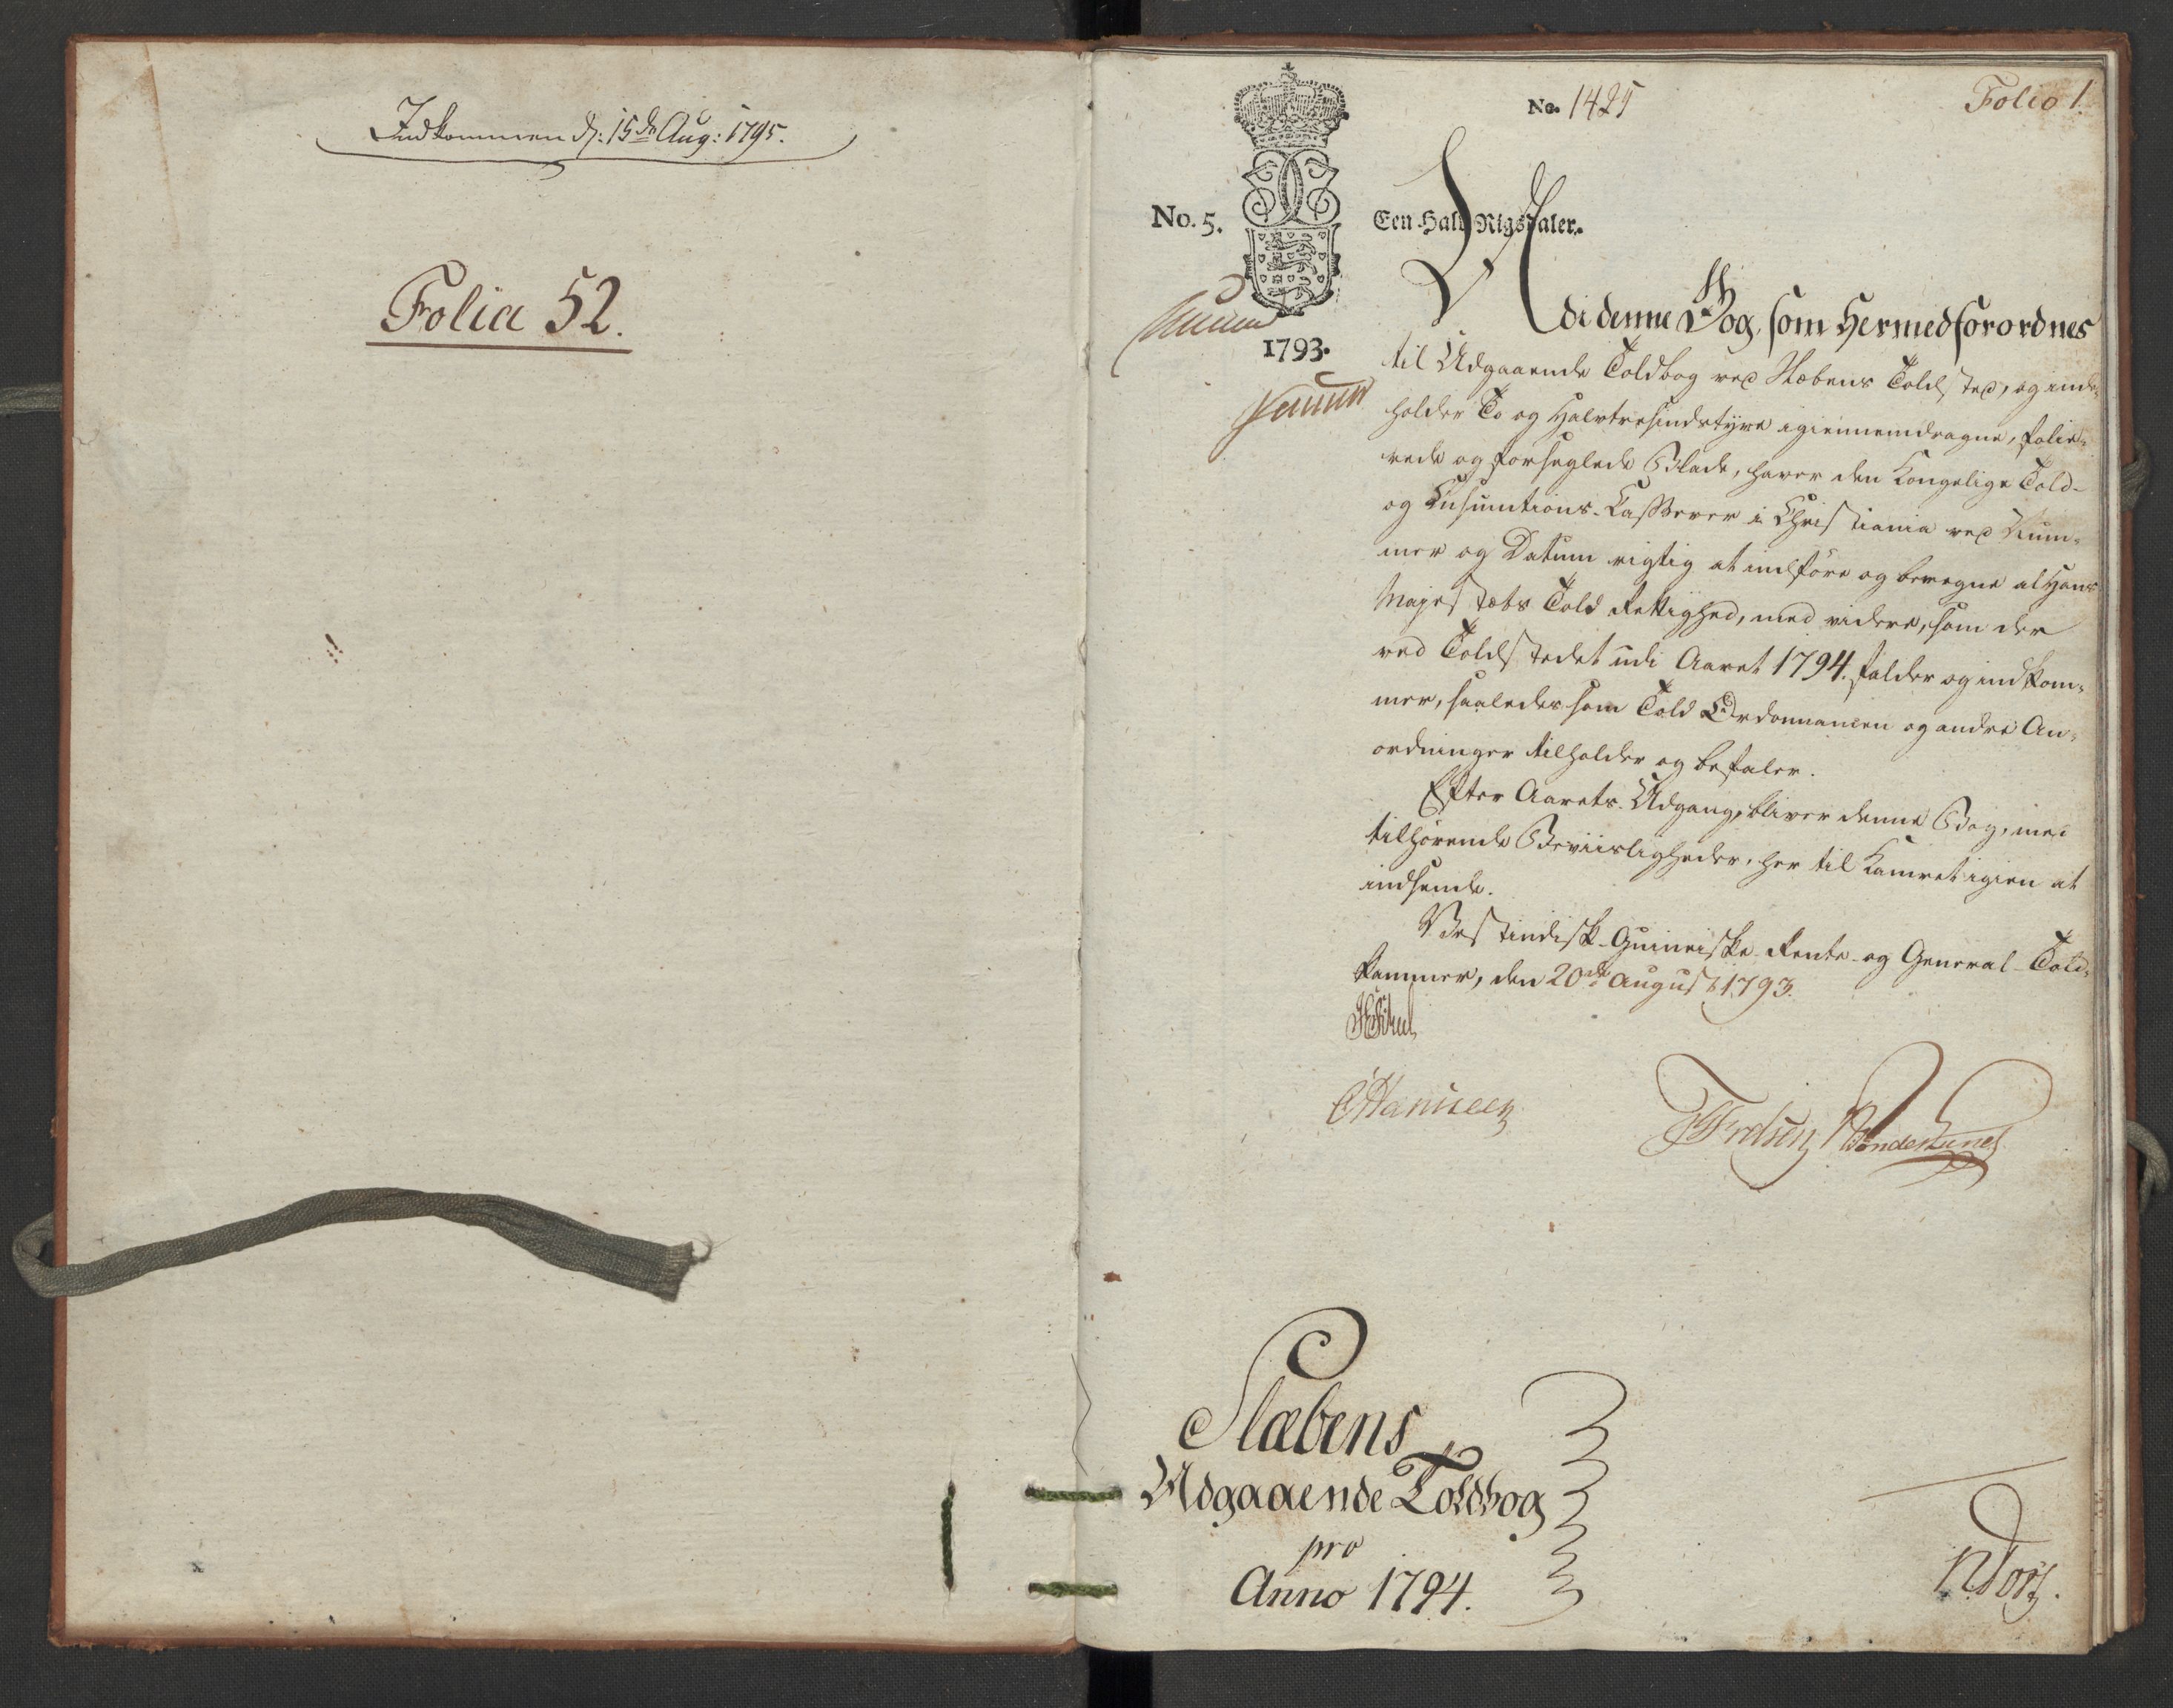 Indkommen d: 15de Aug: 1795.
Folia 52.
No. 1425
Folio 1.
No. 5.
Een Halv Rigsdaler.
1793.
Udi denne Bog, som Hermed forordnes
til Udgaaende Toldbog ved Slæbens Toldsted, og inde-
holder To og Halvtresindstyve igiennemdragne, folie-
rede og forseglede Blade, haver den Kongelige Told-
og Consumtions-Casserer i Christiania ved Num-
mer og Datum rigtig at indföre og beregne al Hans
Majestæts Told Rettighed, med videre, som der
ved Toldstedet udi Aaret 1794. falder og indkom-
mer, saaledes som Told Ordonnancen og andre An-
ordninger tilholder og befaler.
Efter Aarets Udgang, bliver denne Bog, med
tilhörende Beviisligheder, her til Kamret igien at
indsende.
Vestindisk-Guineiske Rente- og General-Told-
kammer, den 20de August 1793.
Slæbens
Udgaaende Toldbog
pro
Anno 1794.